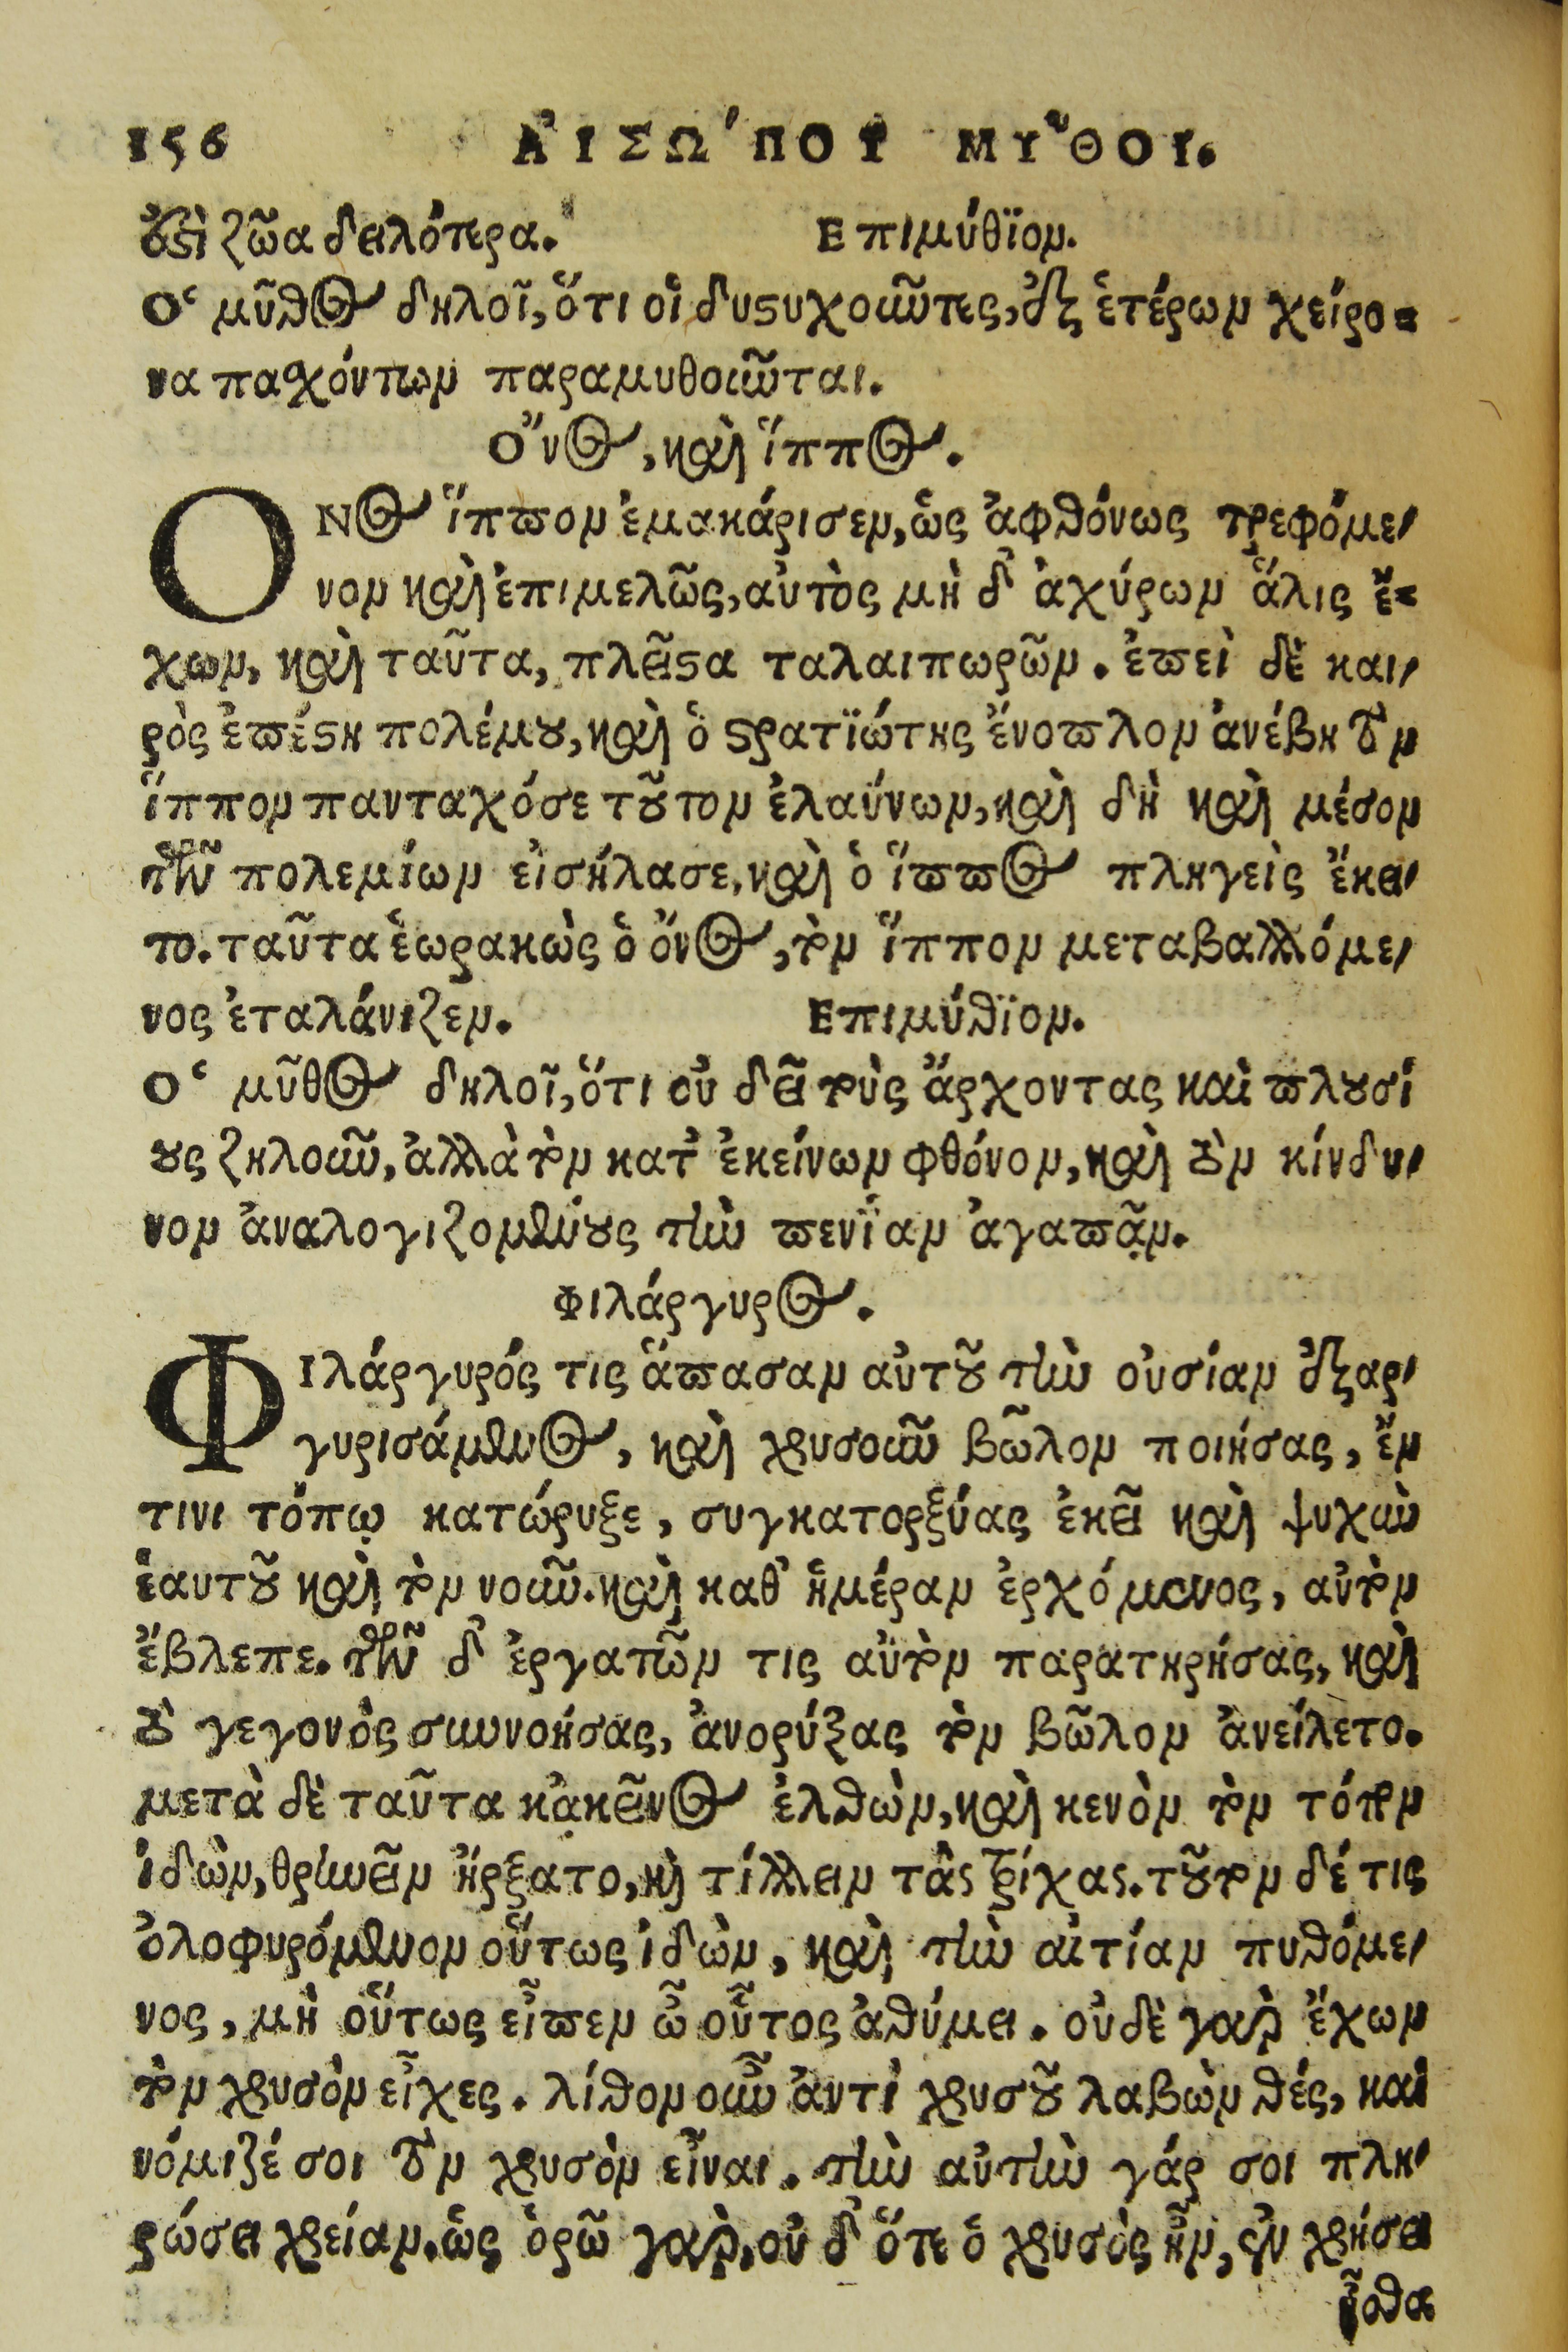 156 ΑἸΣΩ´ΠΟΥ ΜΥ͂ΘΟΙ.
ἐστὶ ζῶα δειλότερα. Επιμύθϊον.
Ο῾ μῦθος δηλοῖ, ὅτι οἱ δυστυχοῦντες, ἐξ ἑτέρων χείρο-
να παθόντων παραμυθοῦνται.
Ο῎νος, καὶ ἵππος.
ΟΝος ἵππον ἐμακάρισεν, ὡς ἀφθόνως τρεφόμε-
νον καὶ ἐπιμελῶς, αὐτὸς μὴ δ' ἀχύρων ἅλις ἔ-
χων, καὶ ταῦτα, πλεῖστα ταλαιπωρῶν. ἐπεὶ δὲ και-
ρὸς ἐπέστη πολέμου, καὶ ὁ στρατϊώτης ἔνοπλον ἀνέβη τὸν
ἵππον πανταχόσε τοῦτον ἐλαύνων, καὶ δὴ καὶ μέσον
τῶν πολεμίων εἰσήλασε, καὶ ὁ ἵππος πληγεὶς ἔκει-
το. ταῦτα ἑωρακὼς ὁ ὄνος, τὸν ἵππον μεταβαλλόμε-
νος ἐταλάνιζεν. Επιμύθϊον.
Ο῾ μῦθος δηλοῖ, ὅτι οὐ δεῖ τοὺς ἄρχοντας καὶ πλουσί
ους ζηλοῦν, ἀλλὰ τὸν κατ' ἐκείνων φθόνον, καὶ τὸν κίνδυ-
νον ἀναλογιζομένους τὴν πενΐαν ἀγαπᾷν.
Φιλάργυρος.
ΦΙλάργυρός τις ἅπασαν αὐτοῦ τὴν οὐσίαν ἐξαρ-
γυρισάμενος, καὶ χρυσοῦν βῶλον ποιήσας, ἔν
τινι τόπῳ κατώρυξε, συγκατορξύας ἐκεῖ καὶ ψυχὴν
ἑαυτοῦ καὶ τὸν νοῦν. καὶ καθ' ἡμέραν ἐρχόμενος, αὐτὸν
ἔβλεπε. τῶν δ' ἐργατῶν τις αὐτὸν παρατηρήσας, καὶ
τὸ γεγονὸς συννοήσας, ἀνορύξας τὸν βῶλον ἀνείλετο.
μετὰ δὲ ταῦτα κᾀκεῖνος ἐλθὼν, καὶ κενὸν τὸν τόπον
ἰδὼν, θρηνεῖν ἤρξατο, καὶ τίλλειν τὰς τρίχας. τοῦτον δέ τις
ὀλοφυρόμενον οὕτως ἰδὼν, καὶ τὴν αἰτίαν πυθόμε-
νος, μὴ οὕτως εἶπεν ὦ οὗτος ἀθύμει. οὐδὲ γὰρ ἔχων
τὸν χρυσὸν εἶχες. λίθον οὖν ἀντὶ χρυσοῦ λαβὼν θές, καὶ
νόμιζέ σοι τὸν χρυσὸν εἶναι. τὴν αὐτὴν γάρ σοι πλη-
ρώσει χρείαν. ὡς ὁρῶ γὰρ, οὐ δ' ὅτε ὁ χρυσὸς ἦν, ἐν χρήσει
ἦσθα